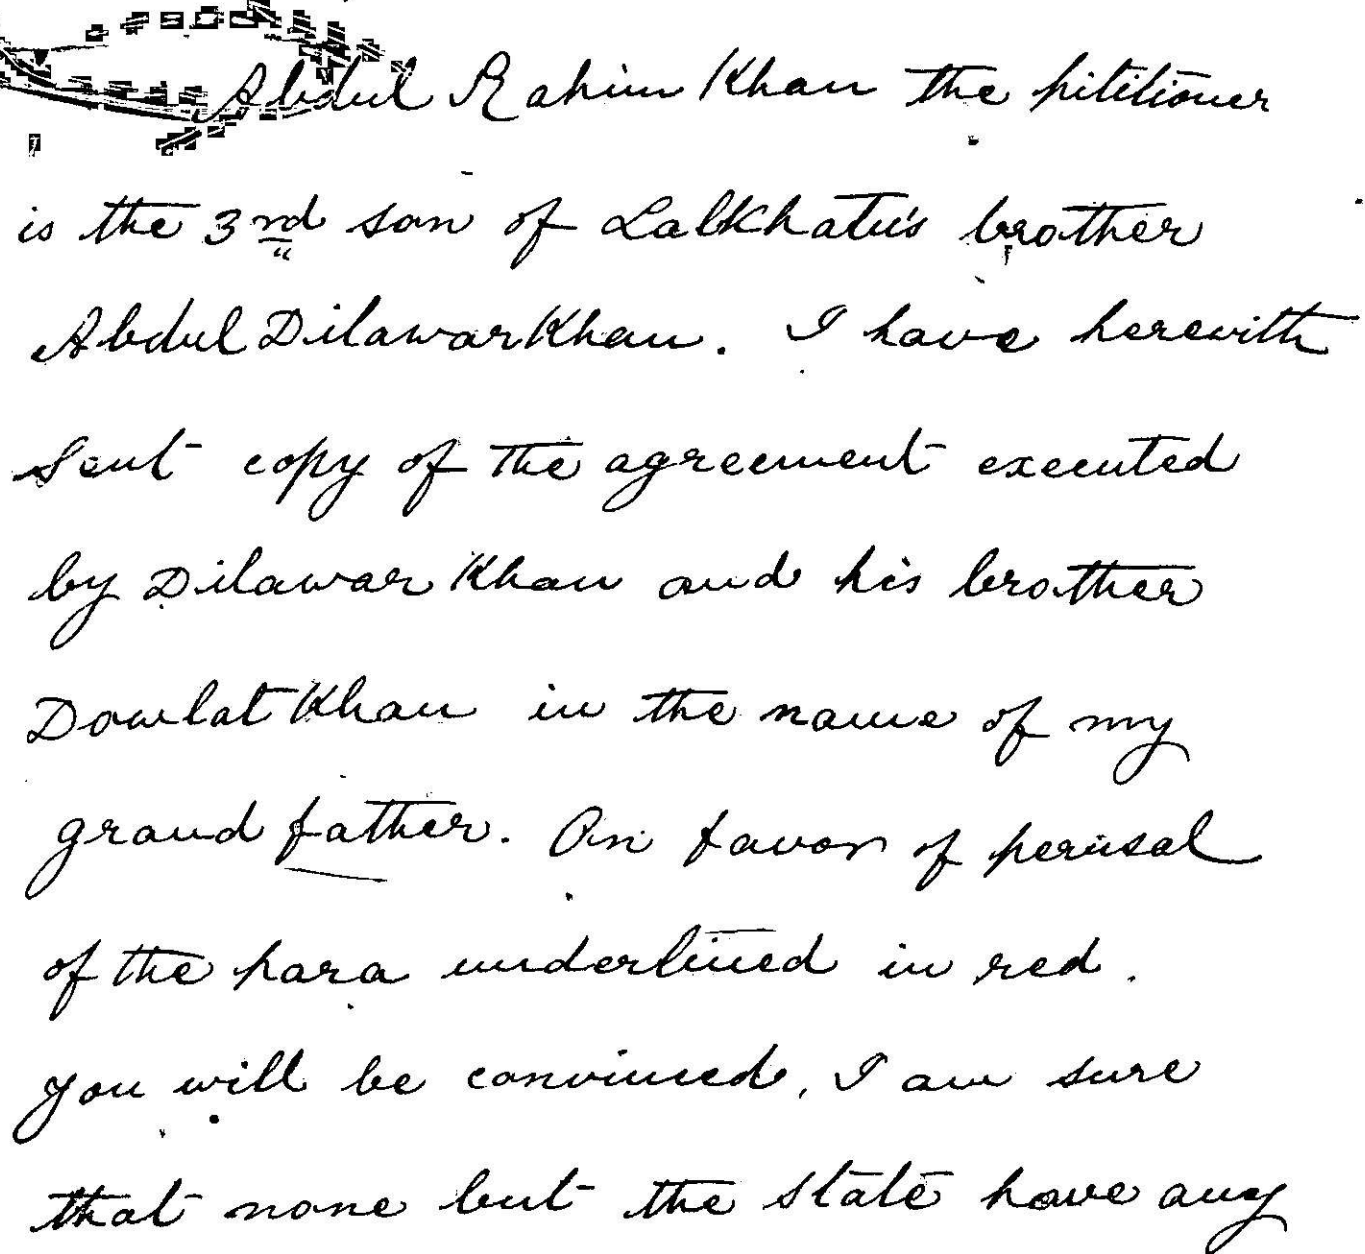 Abdul Rahim Khan the pititioner
is the 3rd son of Lalkhatu's brother
Abdul Dilawar Khan. I have herewith
sent copy of the agreement executed
by Dilawar Khan and his brother
Dowlat Khan in the name of my
grand father. On favor of perusal
of the para underlined in red.
you will be convinced, I am sure
that none but the state have any